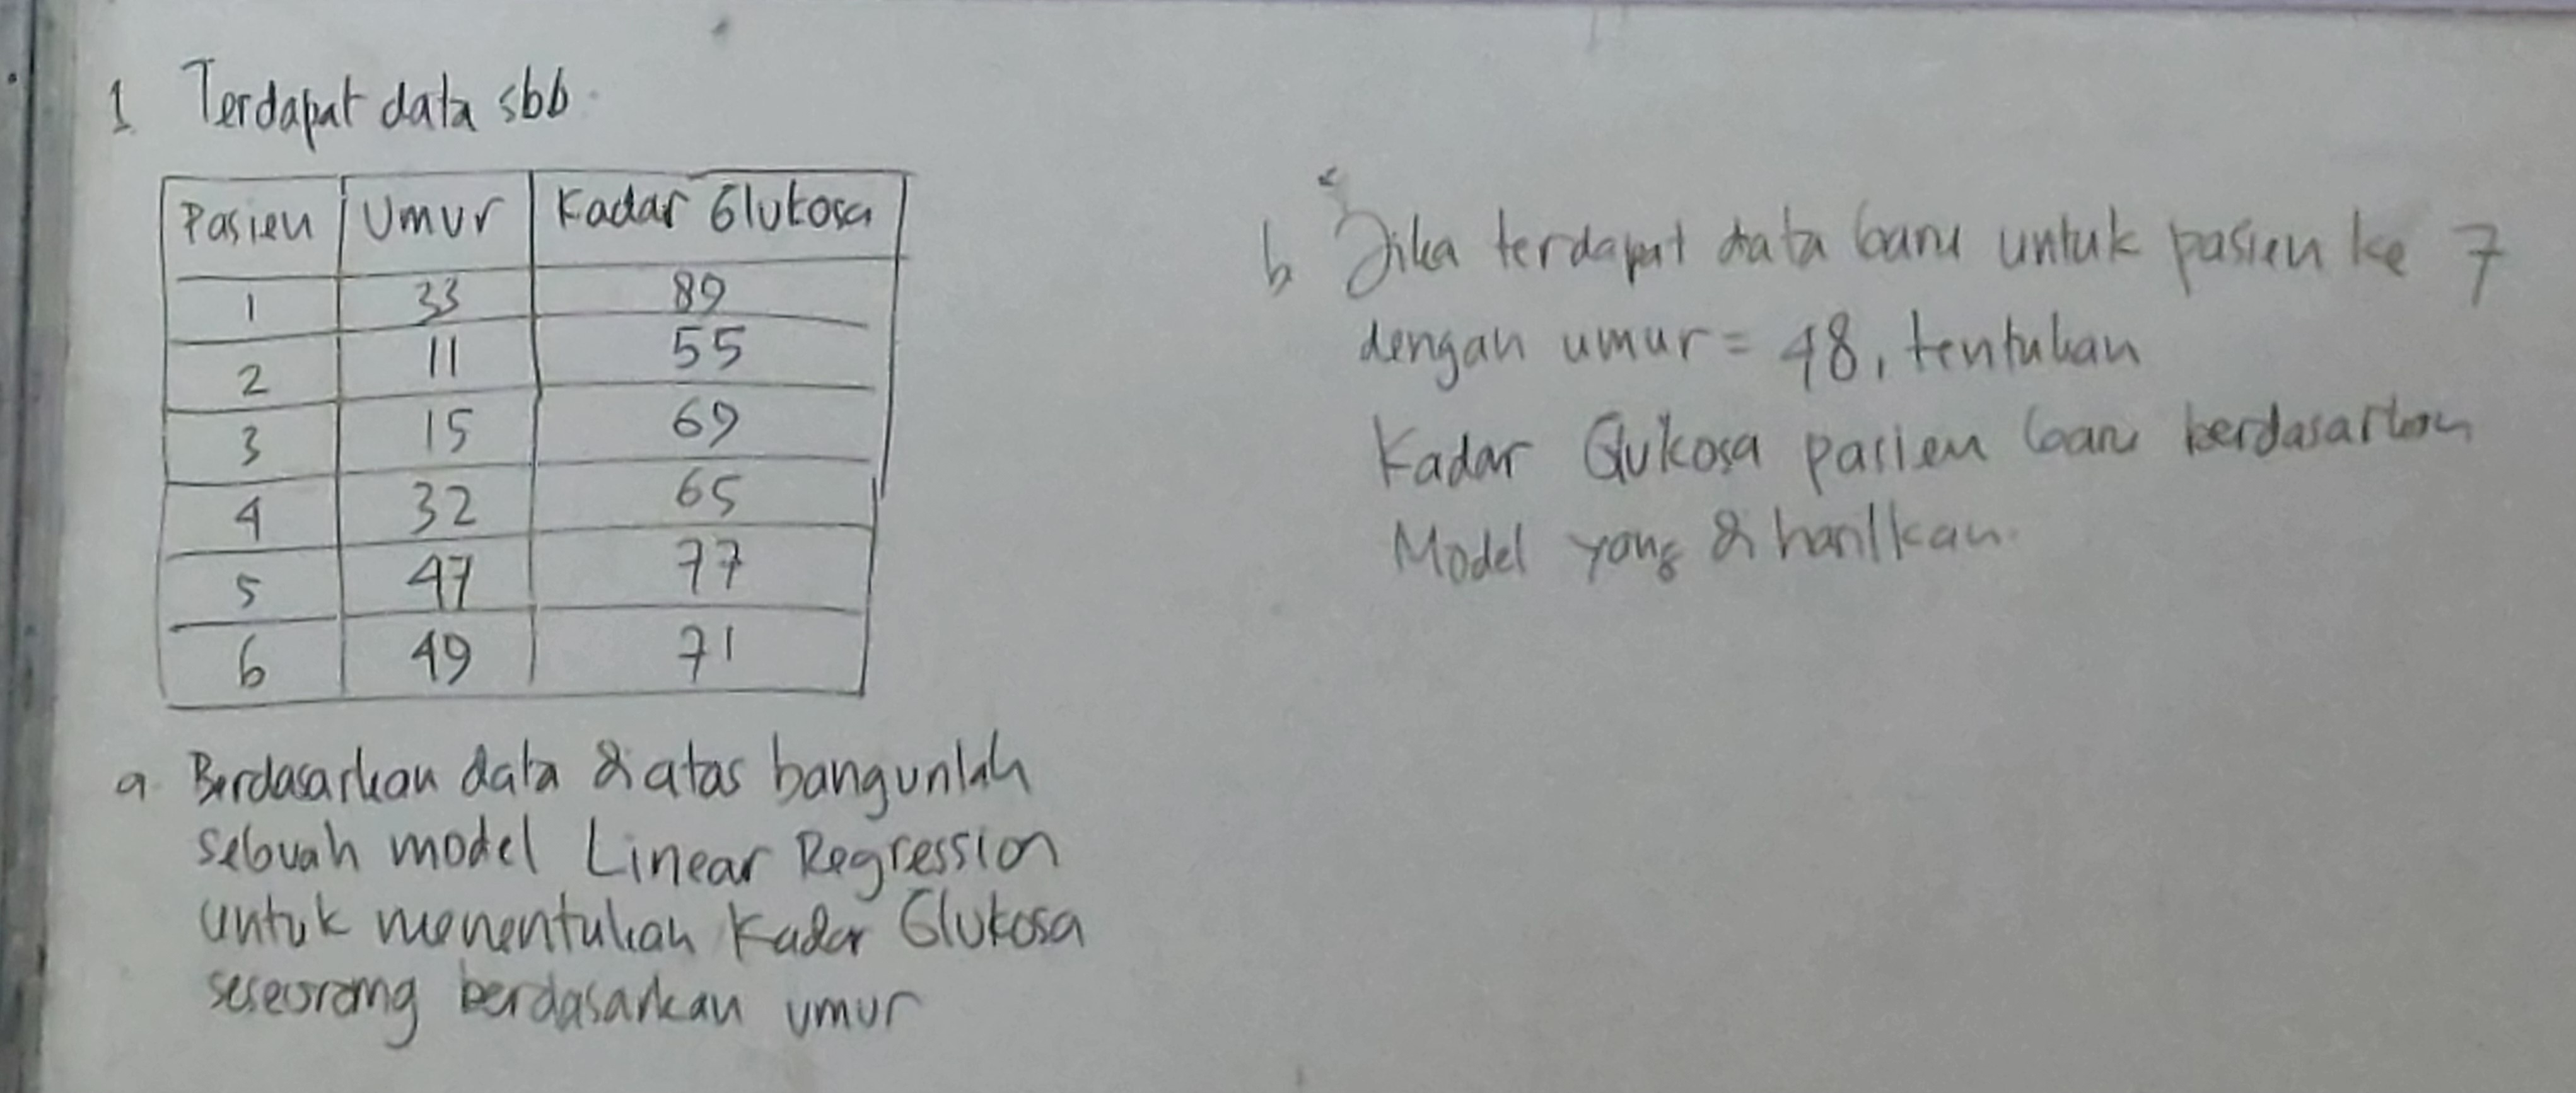 1 Terdapat data sbb.
Pasien Umur Kadar Glukosa
1 33 89
2 11 55
3 15 69
4 32 65
5 47 77
6 49 71
a. Berdasarkan data di atas bangunlah
sebuah model Linear Regression
untuk menentukan Kadar Glukosa
seseorang berdasarkan umur
b. Jika terdapat data baru untuk pasien ke 7
dengan umur = 48, tentukan
Kadar Glukosa pasien baru berdasarkan
Model yang dihasilkan.